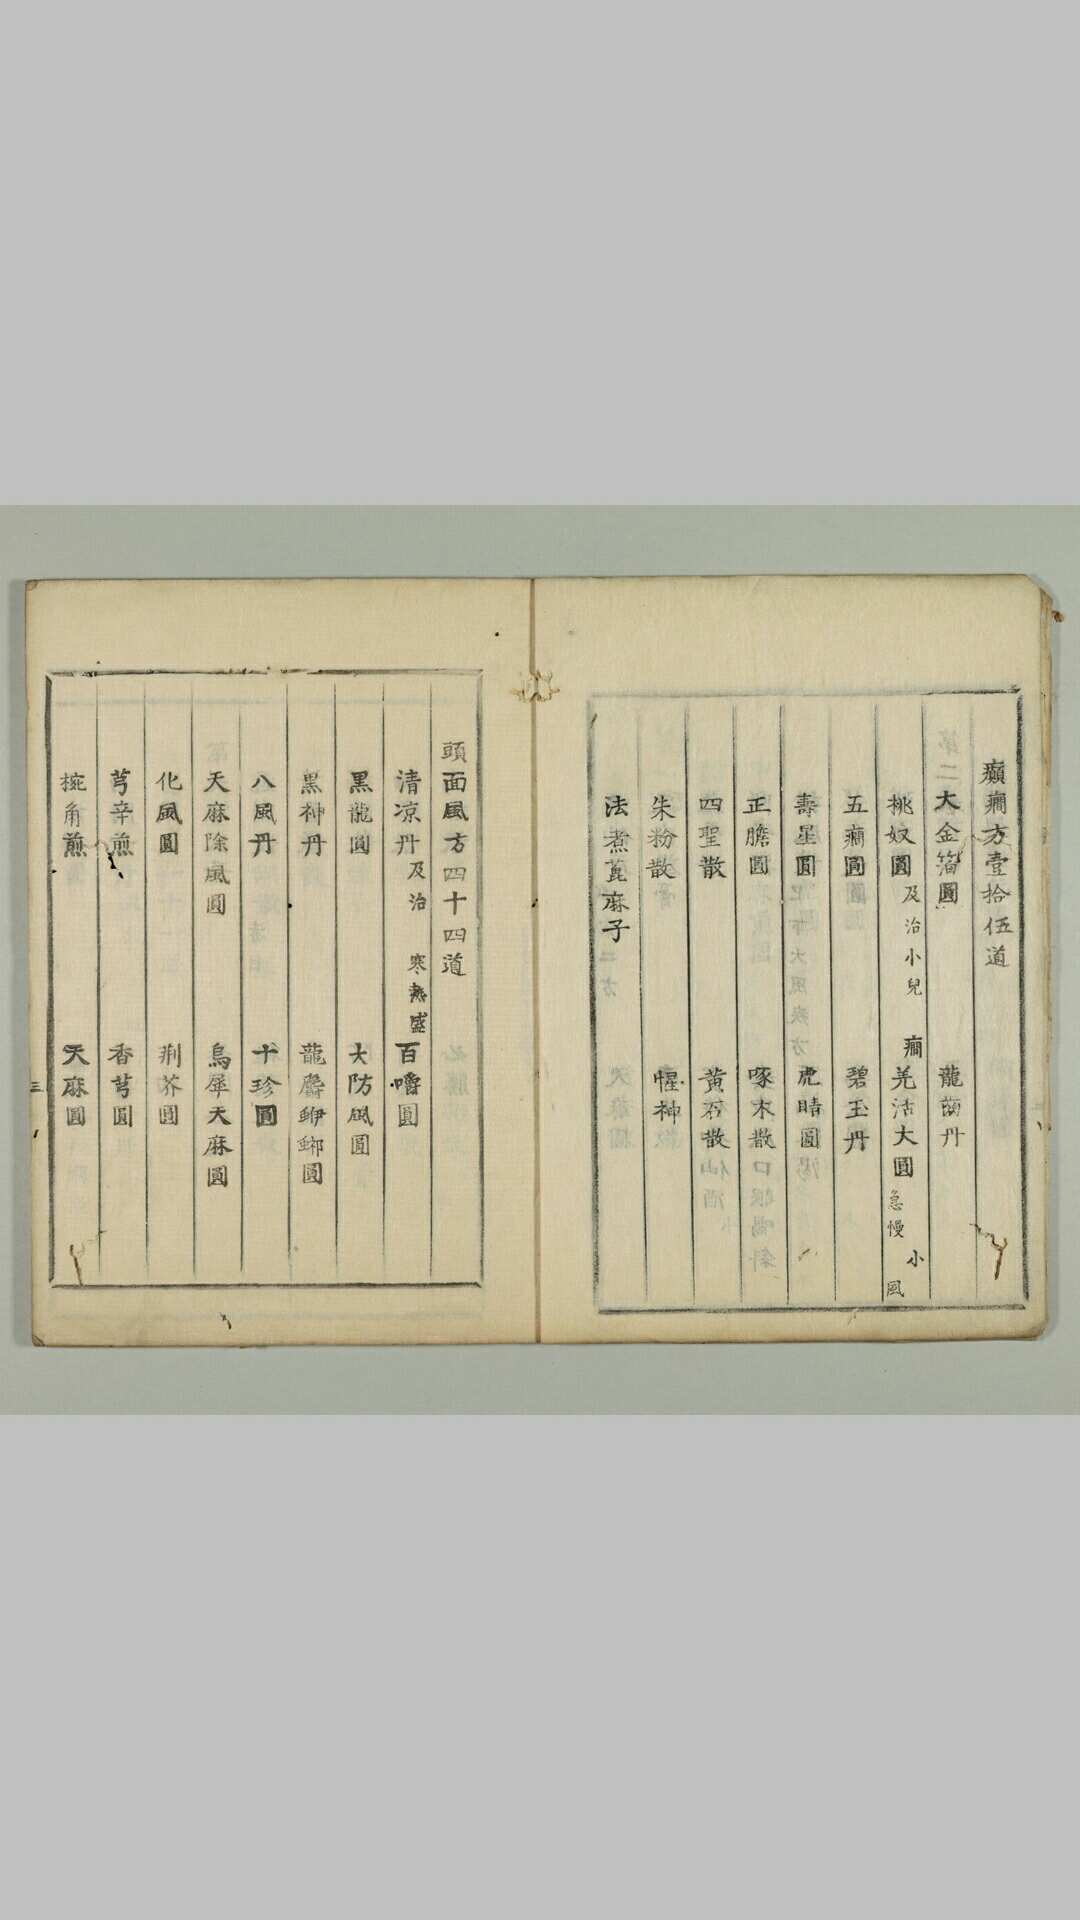 癲癇方壹拾伍道
大金箔圓 龍齒丹
桃奴圓 及治小兒癇 羌活大圓 急慢小風
五癇圓 碧玉丹
壽星圓 虎睛圓
正膽圓 啄木散
四聖散 黃石散
朱粉散 惺神
法煮蓖麻子
頭面風方四十四道
清凉丹 及治寒熱盛 百嚼圓
黑龍圓 大防風圓
黑神丹 龍麝鉀𨧱圓
八風丹 十珍圓
天麻除風圓 烏犀天麻圓
化風圓 荆芥圓
芎辛煎 香芎圓
椀角煎 天麻圓
三